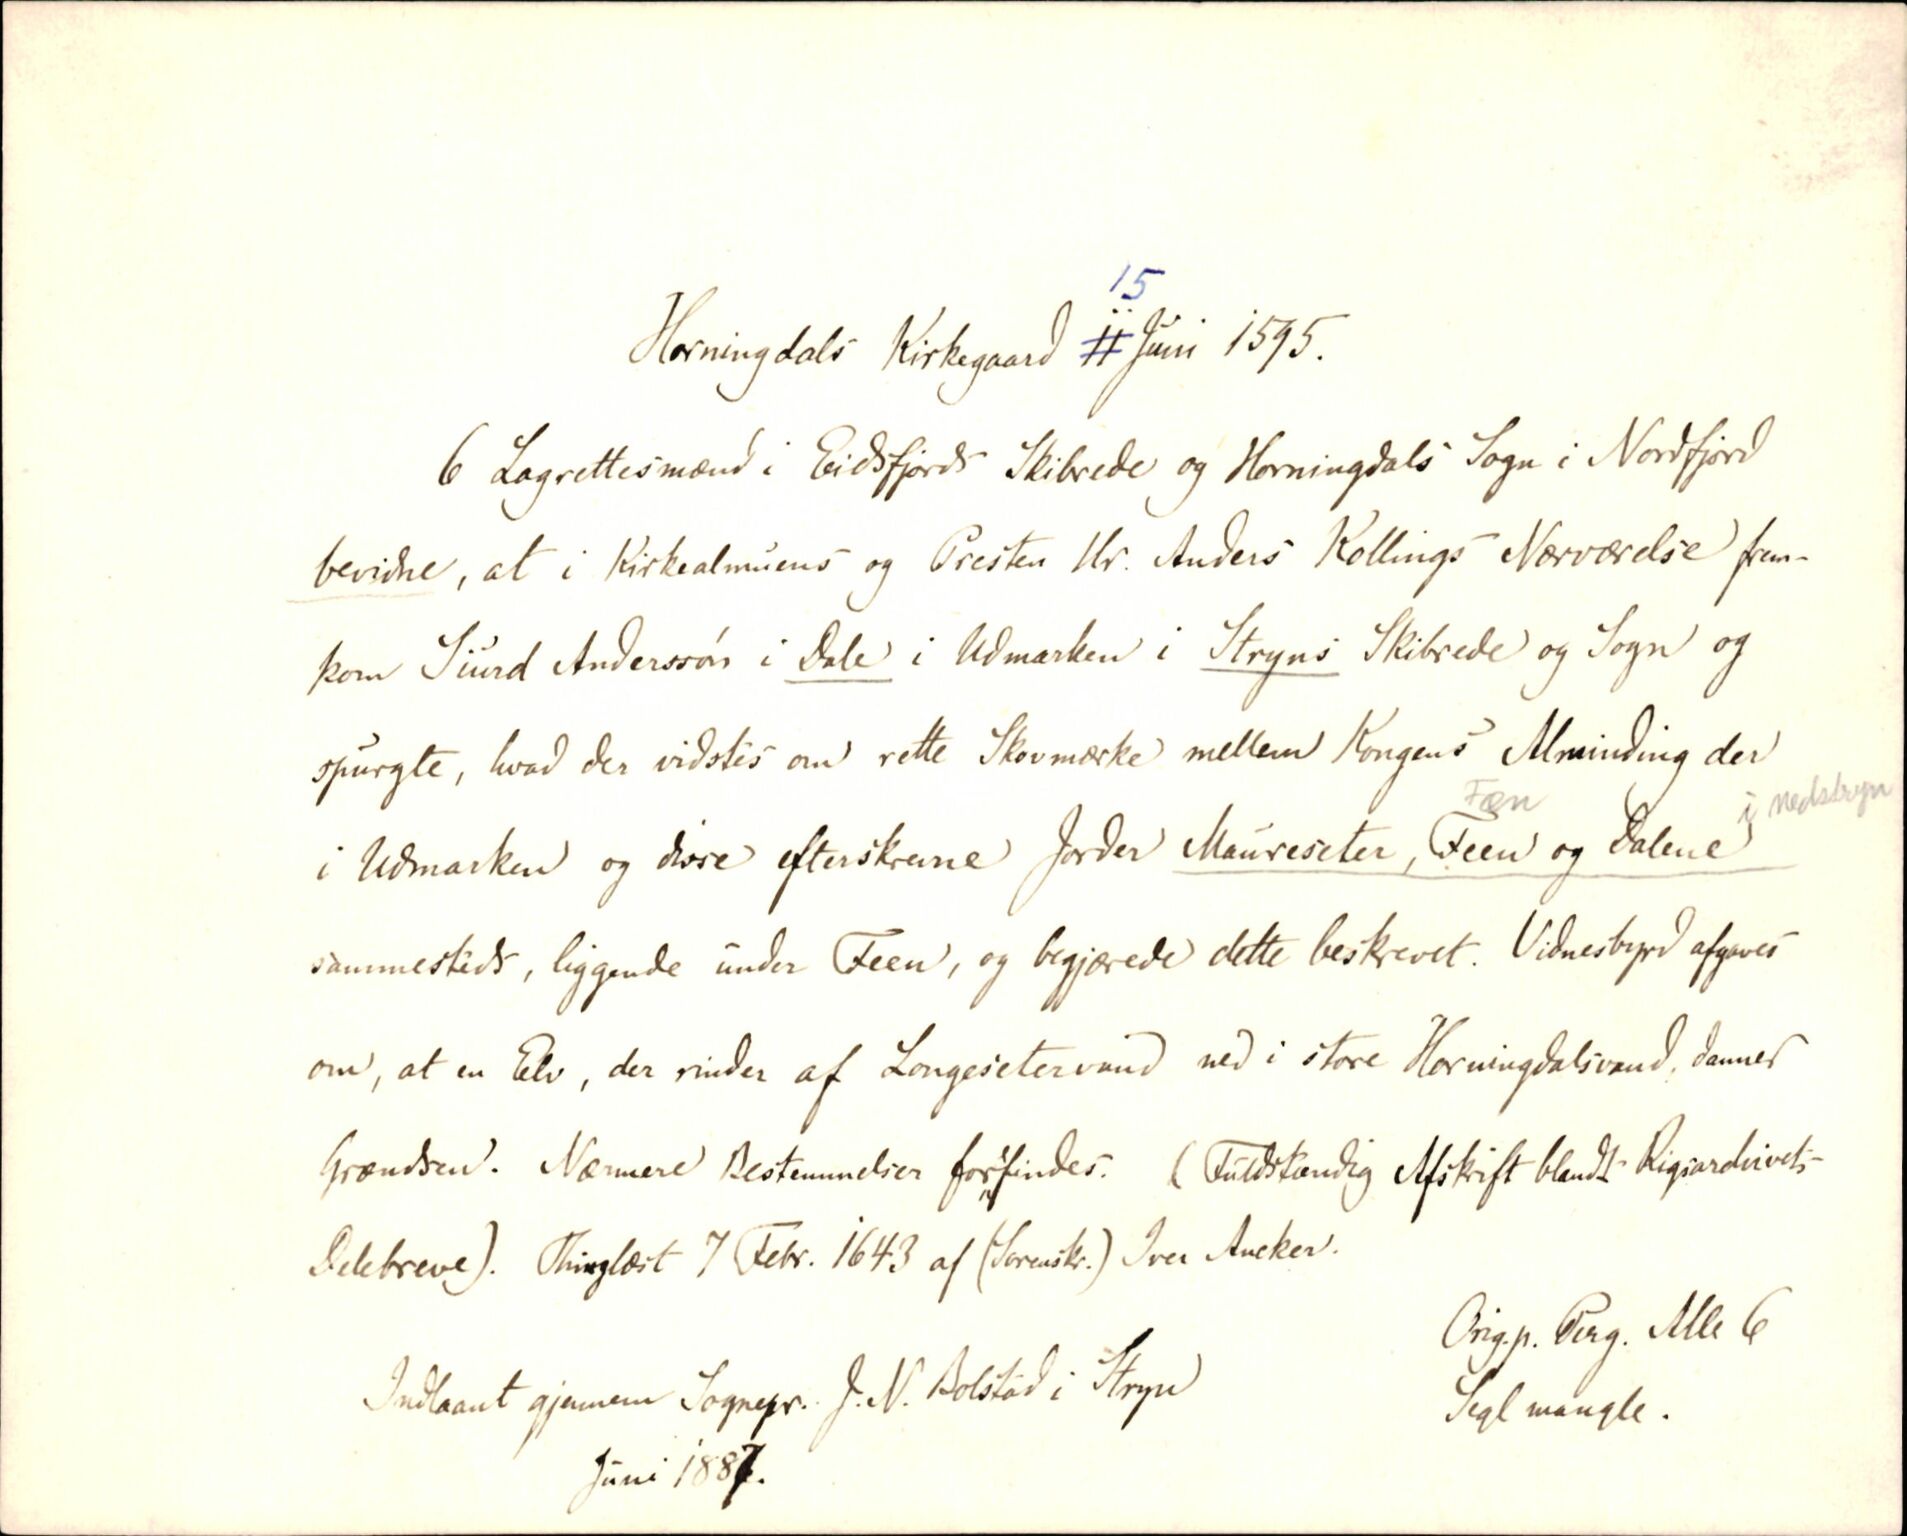 15
Horningdals Kirkegaard 11 Juni 1595.
6 Lagrettesmænd i Eidsfjords Skibrede og Horningdals Sogn i Nordfjord
bevidne, at i Kirkealmuens og Presten Hr. Anders Kollings Nærværelse frem-
kom Siurd Anderssøn i Dale i Udmarken i Stryns Skibrede og Sogn og
spurgte, hvad der vidstes om rette Skovmærke mellem Kongens Alminding der
Fæn
i nedstryn
i Udmarken og disse efterskrevne Jorder Maureseter, Feen og Dalene
sammesteds, liggende under Feen, og begjærede dette beskrevet. Vidnesbyrd afgaves
om, at en Elv, der rinder af Langesetervand ned i store Horningdalsvand, danner
Grændsen. Nærmere Bestemmelser forefindes. (Fuldstændig Afskrift blandt Rigsarchivets
Delebreve). Thinglæst 7 Febr. 1643 af (Sorenskr.) Iver Ancker.
Orig. p. Perg. Alle 6
Segl mangle.
Indlaant gjennem Sognepr. J. N. Bolstad i Stryn
Juni 1887.